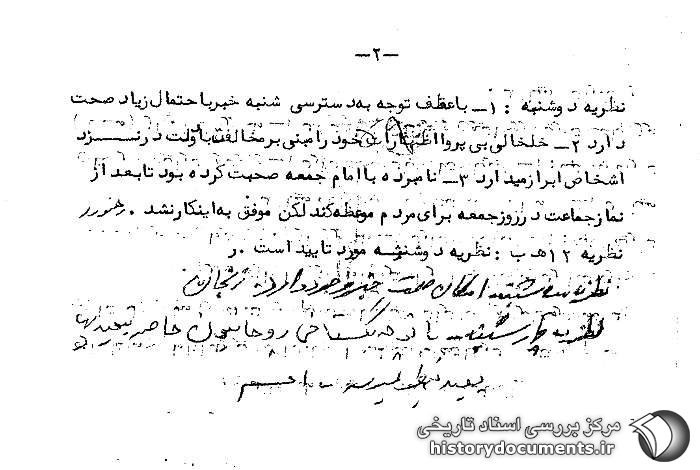 -۲-
نظریه دوشنبه : ۱- باعطف توجه به دسترسی شنبه خبر با احتمال زیاد صحت
دارد ۲- خلخالی بی پروا اظهارات خود را مبنی بر مخالفت با دولت در نـــزد
اشخاص ابراز میدارد ۳- نامبرده با امام جمعه صحبت کرده بود تا بعد از
نماز جماعت در روز جمعه برای مردم موعظه کند لکن موفق به اینکار نشد .
نظریه ۱۲ هـ ب : نظریه دوشنبه مورد تایید است . ر
نظریه سه شنبه امکان صحت خبر وجود دارد . زنجان
نظریه چهارشنبه با توجه روحانیون حاضر
مرکز بررسی اسناد تاریخی
historydocuments.ir